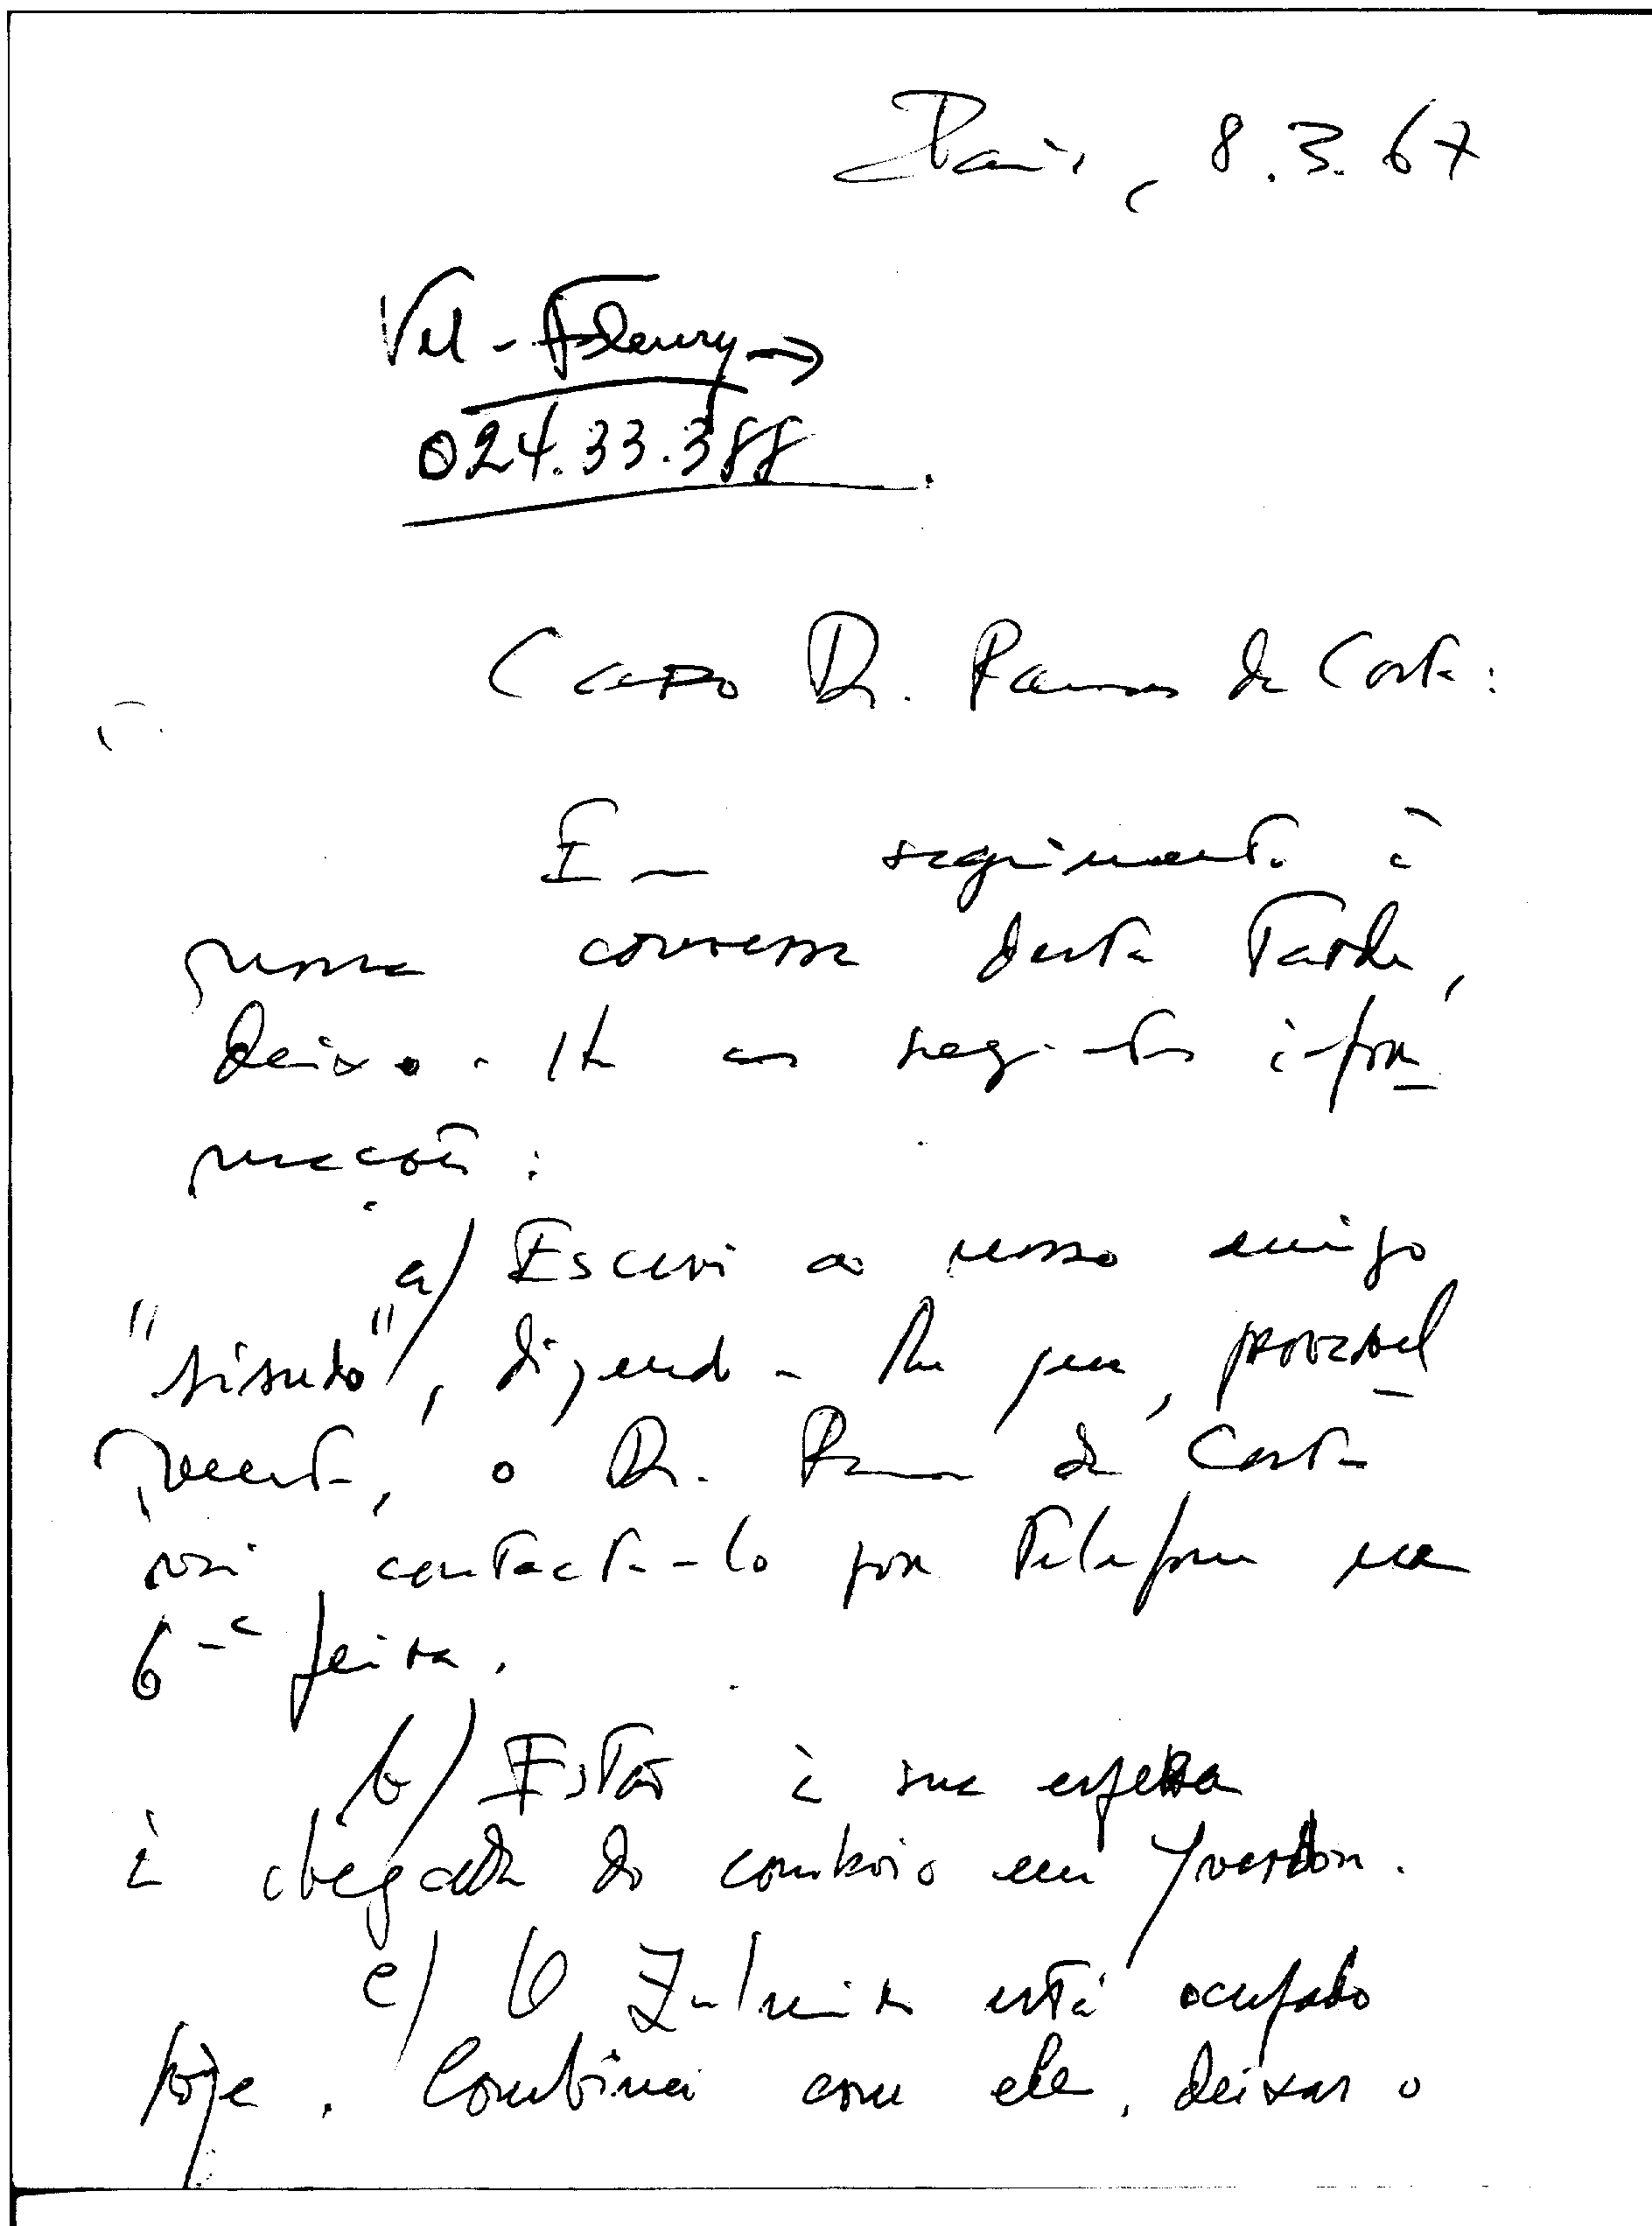 Paris, 8.3.67
Val-Fleury →
024.33.388
Caro Dr. Ramos da Costa:
Em seguimento à
nossa conversa desta tarde,
deixo-lhe as seguintes infor
mações:
a) Escrevi ao nosso amigo
"sisudo", dizendo-lhe que, provável
mente, o Dr. Ramos da Costa
vai contactá-lo por telefone na
6-ª feira.
b) Estão à sua espera
à chegada do comboio em Yverdon.
c) O Zulmiro está ocupado
hoje. Combinei com ele, deixar o